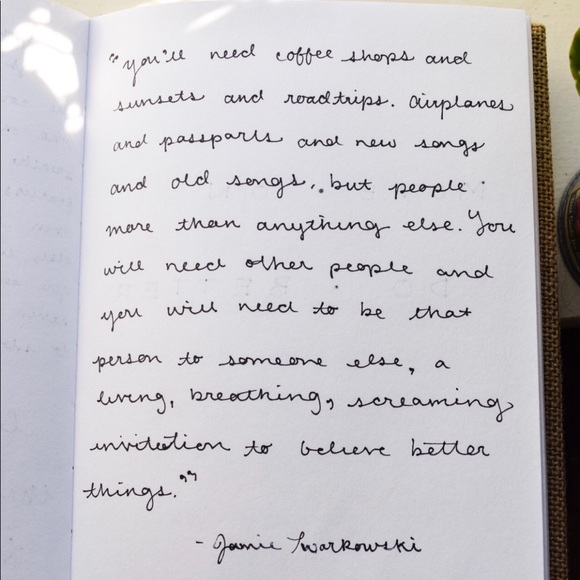 "you'll need coffee shops and
sunsets and roadtrips. airplanes
and passports and new songs
and old songs, but people
more than anything else. You
will need other people and
you will need to be that
person to someone else, a
living, breathing, screaming
invitation to believe better
things.""
- Jamie Tworkowski